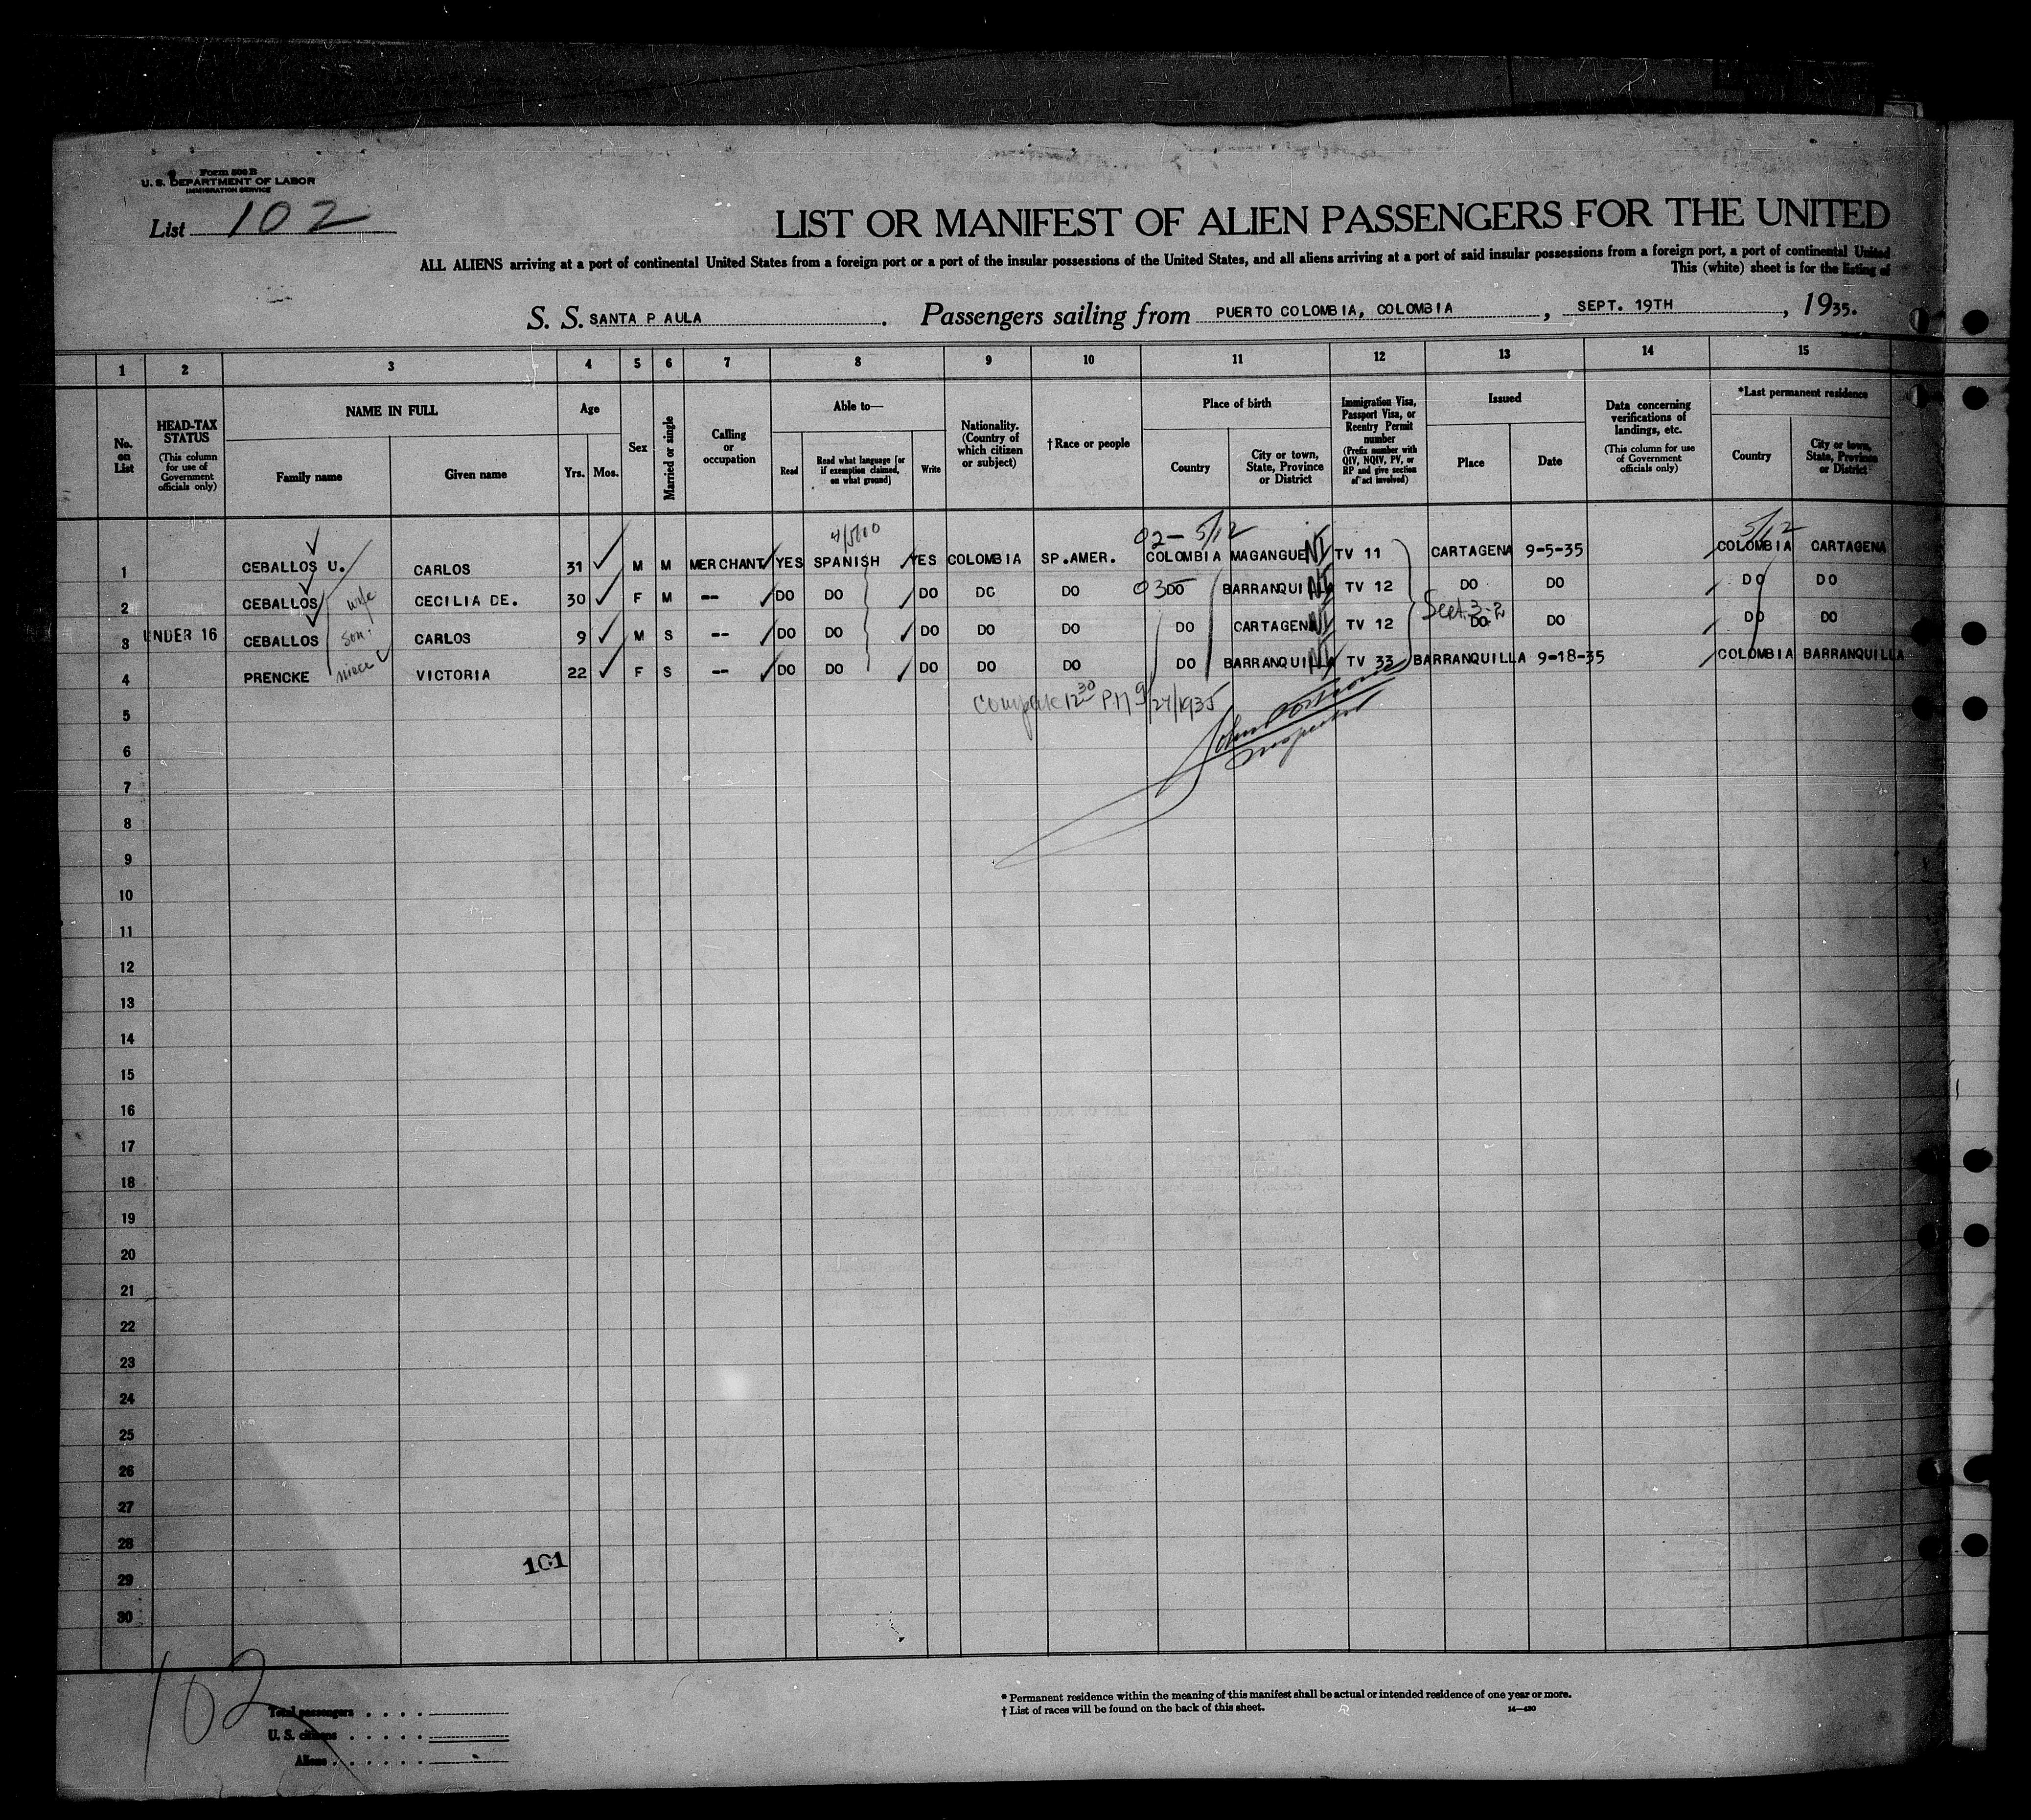 Form 500 B
U. S. DEPARTMENT OF LABOR
IMMIGRATION SERVICE
List 102
LIST OR MANIFEST OF ALIEN PASSENGERS FOR THE UNITED
ALL ALIENS arriving at a port of continental United States from a foreign port or a port of the insular possessions of the United States, and all aliens arriving at a port of said insular possessions from a foreign port, a port of continental United
This (white) sheet is for the listing of
S. S. SANTA PAULA. Passengers sailing from PUERTO COLOMBIA, COLOMBIA, SEPT. 19TH, 1935.
1 2 3 4 5 6 7 8 9 10 11 12 13 14 15
No. on List
HEAD-TAX STATUS (This column for use of Government officials only)
NAME IN FULL
Family name
Given name
Age
Yrs. Mos.
Sex
Married or single
Calling or occupation
Able to—
Read
Read what language [or if exemption claimed, on what ground]
Write
Nationality. (Country of which citizen or subject)
†Race or people
Place of birth
Country
City or town, State, Province or District
Immigration Visa, Passport Visa, or Reentry Permit number (Prefix number with QIV, NQIV, PV, or RP and give section of act involved)
Issued
Place
Date
Data concerning verifications of landings, etc. (This column for use of Government officials only)
*Last permanent residence
Country
City or town, State, Province or District
02 - 5/12 5/12
1 CEBALLOS U. CARLOS 31 M M MERCHANT YES SPANISH YES COLOMBIA SP.AMER. COLOMBIA MAGANGUE NI TV 11 CARTAGENA 9-5-35 COLOMBIA CARTAGENA
2 CEBALLOS wife CECILIA DE. 30 F M -- DO DO DO DO DO 03 DO BARRANQUILLA NI TV 12 DO DO DO DO
Sect. 3-2
3 UNDER 16 CEBALLOS son. CARLOS 9 M S -- DO DO DO DO DO DO CARTAGENA NI TV 12 DO DO DO DO
4 PRENCKE niece VICTORIA 22 F S -- DO DO DO DO DO DO BARRANQUILLA NI TV 33 BARRANQUILLA 9-18-35 COLOMBIA BARRANQUILLA
5 12 30 PM 9/24/1935
6 John Inspector
7
8
9
10
11
12
13
14
15
16
17
18
19
20
21
22
23
24
25
26
27
28
101
29
30
102
Total passengers
U. S. citizens
Aliens
* Permanent residence within the meaning of this manifest shall be actual or intended residence of one year or more.
† List of races will be found on the back of this sheet.
14—430